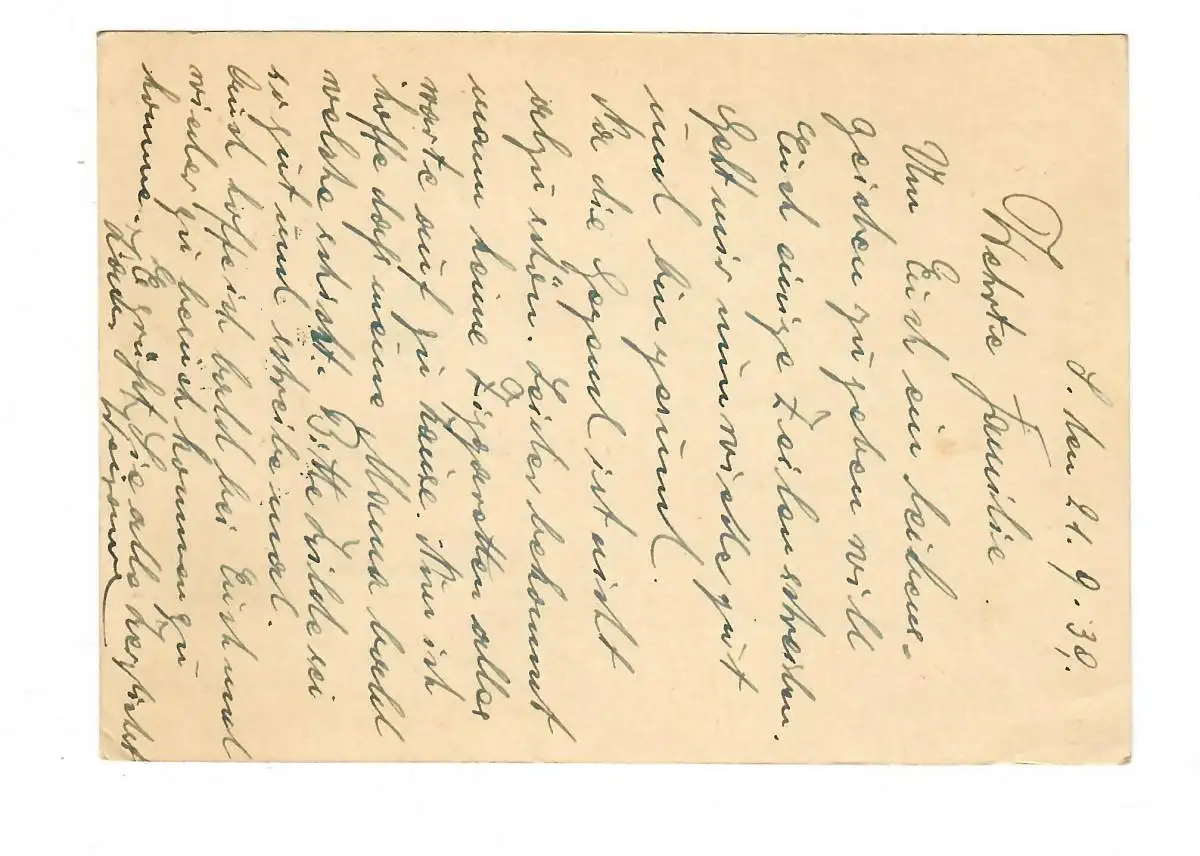 S. den 21.9.39.
Werte Familie
Um Euch ein Leibens-
zeichen zu geben will
Euch einige Zeilen schreiben.
Geht mir nun rechte gut
und bin gesund.
Na die Gegend ist nicht
alzu schön. Leider bekommt
mann keine Zigaretten alles
warte auf zu hause. Nun ich
hoffe daß meine Mama bald
welche schickt. Bitte Hilde sei
so gut und schreibe mal.
Nun hoffe ich bald bei Euch und
wieder zu besuch kommen zu
komme. Es grüßt Sie alle herzlichst